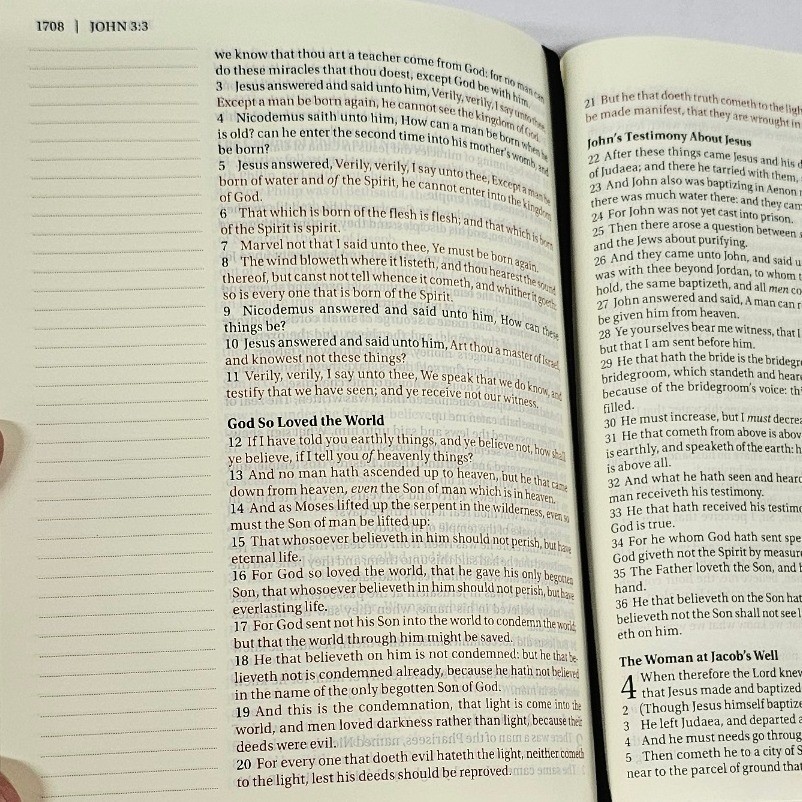 1708 | JOHN 3:3
we know that thou art a teacher come from God: for no man can
do these miracles that thou doest, except God be with him.
3 Jesus answered and said unto him, Verily, verily, I say unto thee,
Except a man be born again, he cannot see the kingdom of God.
4 Nicodemus saith unto him, How can a man be born when he
is old? can he enter the second time into his mother's womb, and
be born?
5 Jesus answered, Verily, verily, I say unto thee, Except a man be
born of water and of the Spirit, he cannot enter into the kingdom
of God.
6 That which is born of the flesh is flesh; and that which is born
of the Spirit is spirit.
7 Marvel not that I said unto thee, Ye must be born again.
8 The wind bloweth where it listeth, and thou hearest the sound
thereof, but canst not tell whence it cometh, and whither it goeth:
so is every one that is born of the Spirit.
9 Nicodemus answered and said unto him, How can these
things be?
10 Jesus answered and said unto him, Art thou a master of Israel,
and knowest not these things?
11 Verily, verily, I say unto thee, We speak that we do know, and
testify that we have seen; and ye receive not our witness.
God So Loved the World
12 If I have told you earthly things, and ye believe not, how shall
ye believe, if I tell you of heavenly things?
13 And no man hath ascended up to heaven, but he that came
down from heaven, even the Son of man which is in heaven.
14 And as Moses lifted up the serpent in the wilderness, even so
must the Son of man be lifted up:
15 That whosoever believeth in him should not perish, but have
eternal life.
16 For God so loved the world, that he gave his only begotten
Son, that whosoever believeth in him should not perish, but have
everlasting life.
17 For God sent not his Son into the world to condemn the world;
but that the world through him might be saved.
18 He that believeth on him is not condemned: but he that be-
lieveth not is condemned already, because he hath not believed
in the name of the only begotten Son of God.
19 And this is the condemnation, that light is come into the
world, and men loved darkness rather than light, because their
deeds were evil.
20 For every one that doeth evil hateth the light, neither cometh
to the light, lest his deeds should be reproved.
21 But he that doeth truth cometh to the ligh
be made manifest, that they are wrought in
John's Testimony About Jesus
22 After these things came Jesus and his d
of Judaea; and there he tarried with them,
23 And John also was baptizing in Aenon
there was much water there: and they cam
24 For John was not yet cast into prison.
25 Then there arose a question between
and the Jews about purifying.
26 And they came unto John, and said u
was with thee beyond Jordan, to whom t
hold, the same baptizeth, and all men co
27 John answered and said, A man can r
be given him from heaven.
28 Ye yourselves bear me witness, that I
but that I am sent before him.
29 He that hath the bride is the bridegro
bridegroom, which standeth and hear
because of the bridegroom's voice: th
filled.
30 He must increase, but I must decrea
31 He that cometh from above is abov
is earthly, and speaketh of the earth: h
is above all.
32 And what he hath seen and heard
man receiveth his testimony.
33 He that hath received his testimo
God is true.
34 For he whom God hath sent spe
God giveth not the Spirit by measur
35 The Father loveth the Son, and h
hand.
36 He that believeth on the Son hat
believeth not the Son shall not see l
eth on him.
The Woman at Jacob's Well
4 When therefore the Lord knew
that Jesus made and baptized
2 (Though Jesus himself baptize
3 He left Judaea, and departed a
4 And he must needs go throug
5 Then cometh he to a city of S
near to the parcel of ground that